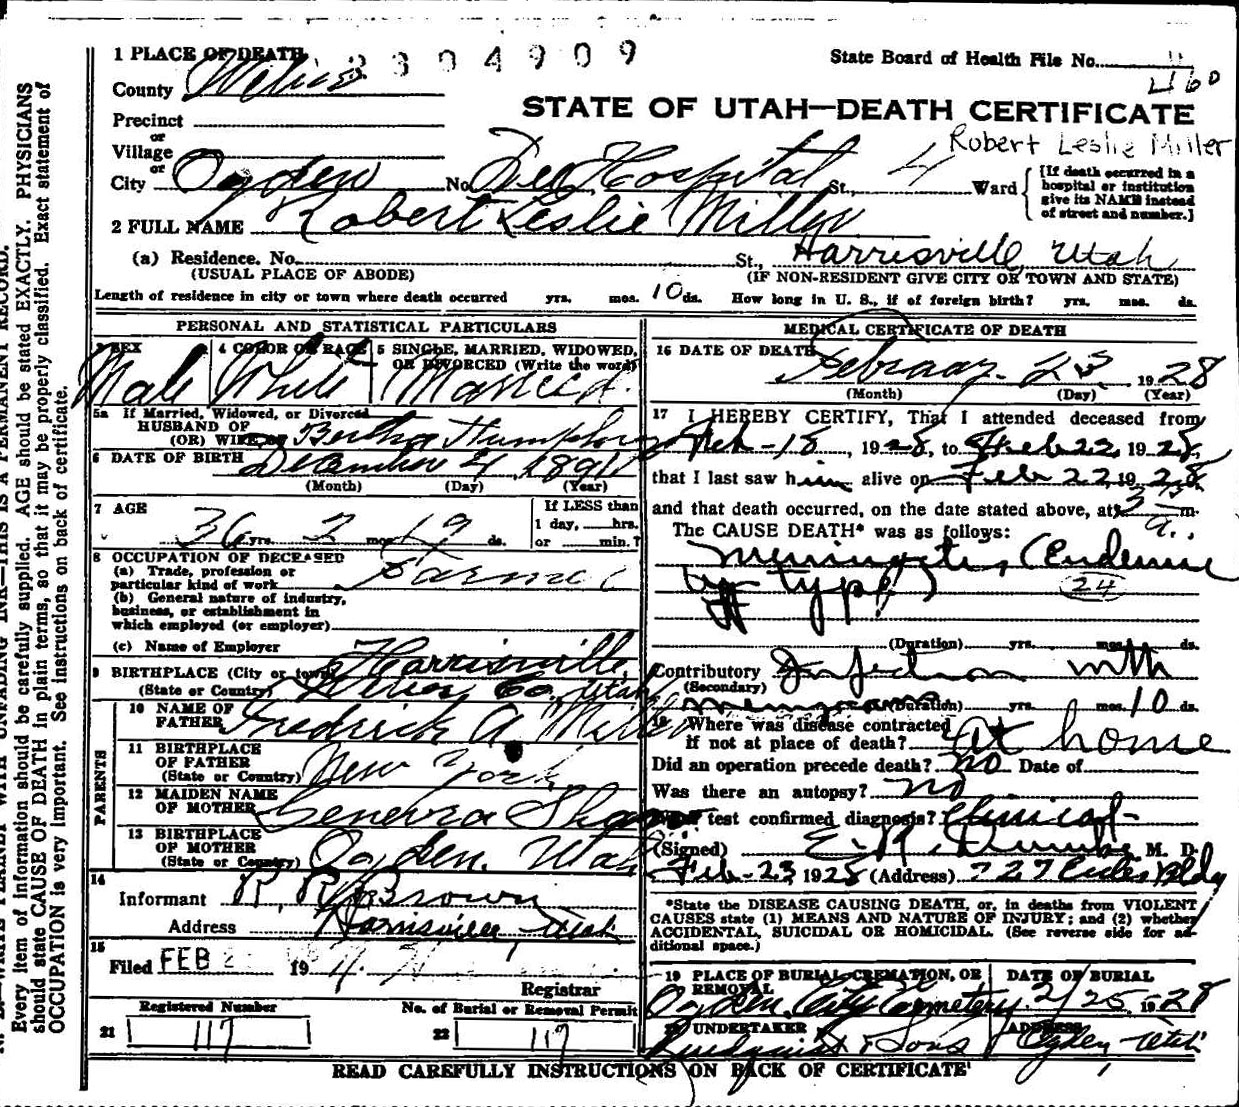 1 PLACE OF DEATH 3304909
State Board of Health File No. 460
County Weber
STATE OF UTAH—DEATH CERTIFICATE
Precinct
or
Village
or
Robert Leslie Miller
City Ogden No. Dee Hospital St., 4 Ward
[If death occurred in a
hospital or institution
give its NAME instead
of street and number.]
2 FULL NAME Robert Leslie Miller
(a) Residence. No. St., Harrisville, Utah
(USUAL PLACE OF ABODE) (IF NON-RESIDENT GIVE CITY OR TOWN AND STATE)
Length of residence in city or town where death occurred yrs. mos. 10 ds. How long in U. S., if of foreign birth? yrs. mos. ds.
PERSONAL AND STATISTICAL PARTICULARS
3 SEX 4 COLOR OR RACE 5 SINGLE, MARRIED, WIDOWED,
OR DIVORCED (Write the word)
Male White Married
5a If Married, Widowed, or Divorced
HUSBAND OF
(OR) WIFE OF Bertha
6 DATE OF BIRTH December 4, 1891
(Month) (Day) (Year)
7 AGE
If LESS than
1 day, hrs.
or min.?
36 yrs. 2 mos. 19 ds.
8 OCCUPATION OF DECEASED
(a) Trade, profession or
particular kind of work Farmer
(b) General nature of industry,
business, or establishment in
which employed (or employer)
(c) Name of Employer
9 BIRTHPLACE (City or town) Harrisville
(State or Country) Weber Co, Utah
PARENTS
10 NAME OF
FATHER Frederick A Miller
11 BIRTHPLACE
OF FATHER
(State or Country) New York
12 MAIDEN NAME
OF MOTHER Genevra
13 BIRTHPLACE
OF MOTHER
(State or Country) Ogden, Utah
14
Informant R. R. Brown
Address Harrisville, Utah
15
Filed FEB 19
Registrar
Registered Number No. of Burial or Removal Permit
21 117 22 117
MEDICAL CERTIFICATE OF DEATH
16 DATE OF DEATH
February 23 1928
(Month) (Day) (Year)
17 I HEREBY CERTIFY, That I attended deceased from
Feb-18, 1928, to Feb 22, 1928,
that I last saw him alive on Feb 22, 1928
and that death occurred, on the date stated above, at m.
The CAUSE DEATH* was as follows:
Meningitis (Endemic
type) 24
(Duration) yrs. mos. ds.
Contributory Infection with
(Secondary)
(Duration) yrs. mos. 10 ds.
18 Where was disease contracted
If not at place of death? At home
Did an operation precede death? no Date of
Was there an autopsy? no
What test confirmed diagnosis? Clinical
(Signed) E. R. M. D.
Feb-23, 1928 (Address) 727 Eccles Bldg
*State the DISEASE CAUSING DEATH, or, in deaths from VIOLENT
CAUSES state (1) MEANS AND NATURE OF INJURY; and (2) whether
ACCIDENTAL, SUICIDAL OR HOMICIDAL. (See reverse side for ad-
ditional space.)
19 PLACE OF BURIAL, CREMATION, OR
REMOVAL
DATE OF BURIAL
Ogden City Cemetery 2/25 1928
20 UNDERTAKER ADDRESS
Lindquist & Sons Ogden, Utah
READ CAREFULLY INSTRUCTIONS ON BACK OF CERTIFICATE
WRITE PLAINLY WITH UNFADING INK—THIS IS A PERMANENT RECORD.
Every item of information should be carefully supplied. AGE should be stated EXACTLY. PHYSICIANS
should state CAUSE OF DEATH in plain terms, so that it may be properly classified. Exact statement of
OCCUPATION is very important. See instructions on back of certificate.